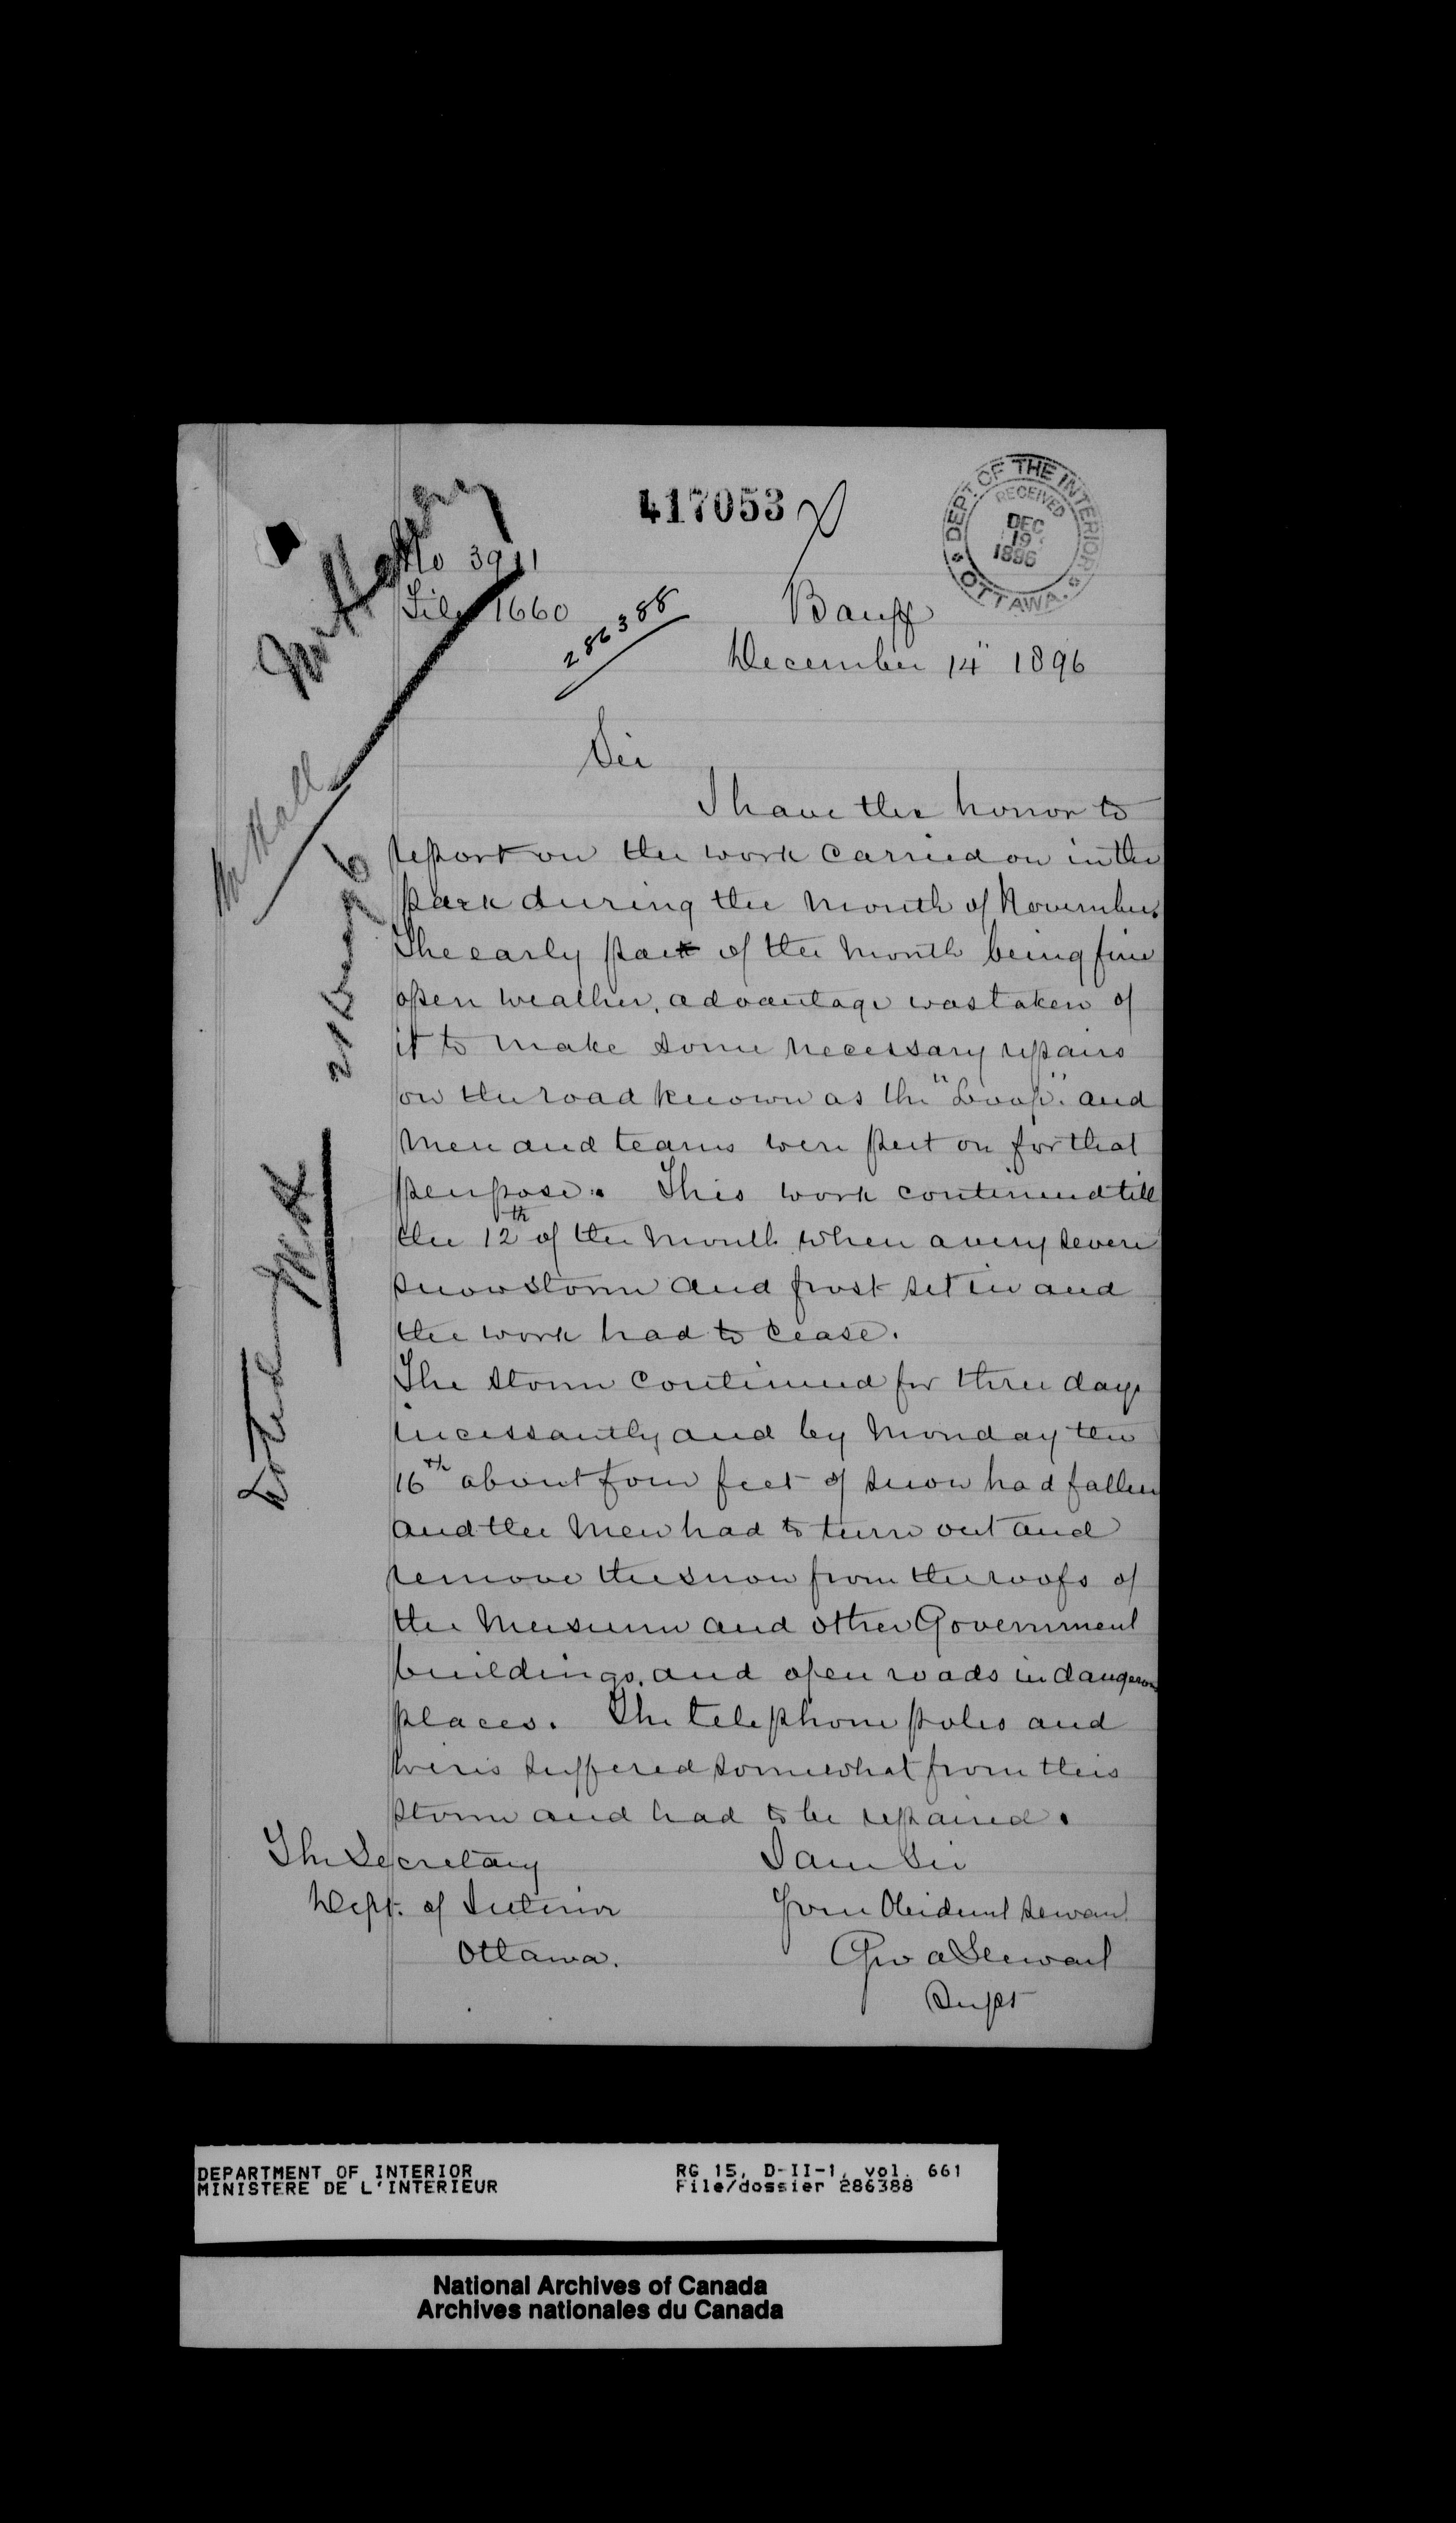 417053
DEPT. OF THE INTERIOR
RECEIVED
DEC
19
1896
OTTAWA.
No 3911
File 1660
286388
Banff
December 14" 1896
Sir
I have the honor to
report on the work carried on in the
park during the month of November.
The early part of the month being fine
open weather, advantage was taken of
it to make some necessary repairs
on the road known as the "Loop" and
men and teams were put on for that
purpose. This work continued till
the 12th of the month when a very severe
snowstorm and frost set in and
the work had to cease.
The storm continued for three days
incessantly and by Monday the
16th about four feet of snow had fallen
and the men had to turn out and
remove the snow from the roofs of
the Museum and other Government
buildings, and open roads in dangerous
places. The telephone poles and
wires suffered somewhat from this
storm and had to be repaired.
I am Sir
Your Obedient Servant
Geo A Stewart
Supt
The Secretary
Dept. of Interior
Ottawa.
Mr Hall
Noted
21 Dec 96
DEPARTMENT OF INTERIOR
MINISTERE DE L'INTERIEUR
RG 15, D-II-1, vol. 661
File/dossier 286388
National Archives of Canada
Archives nationales du Canada